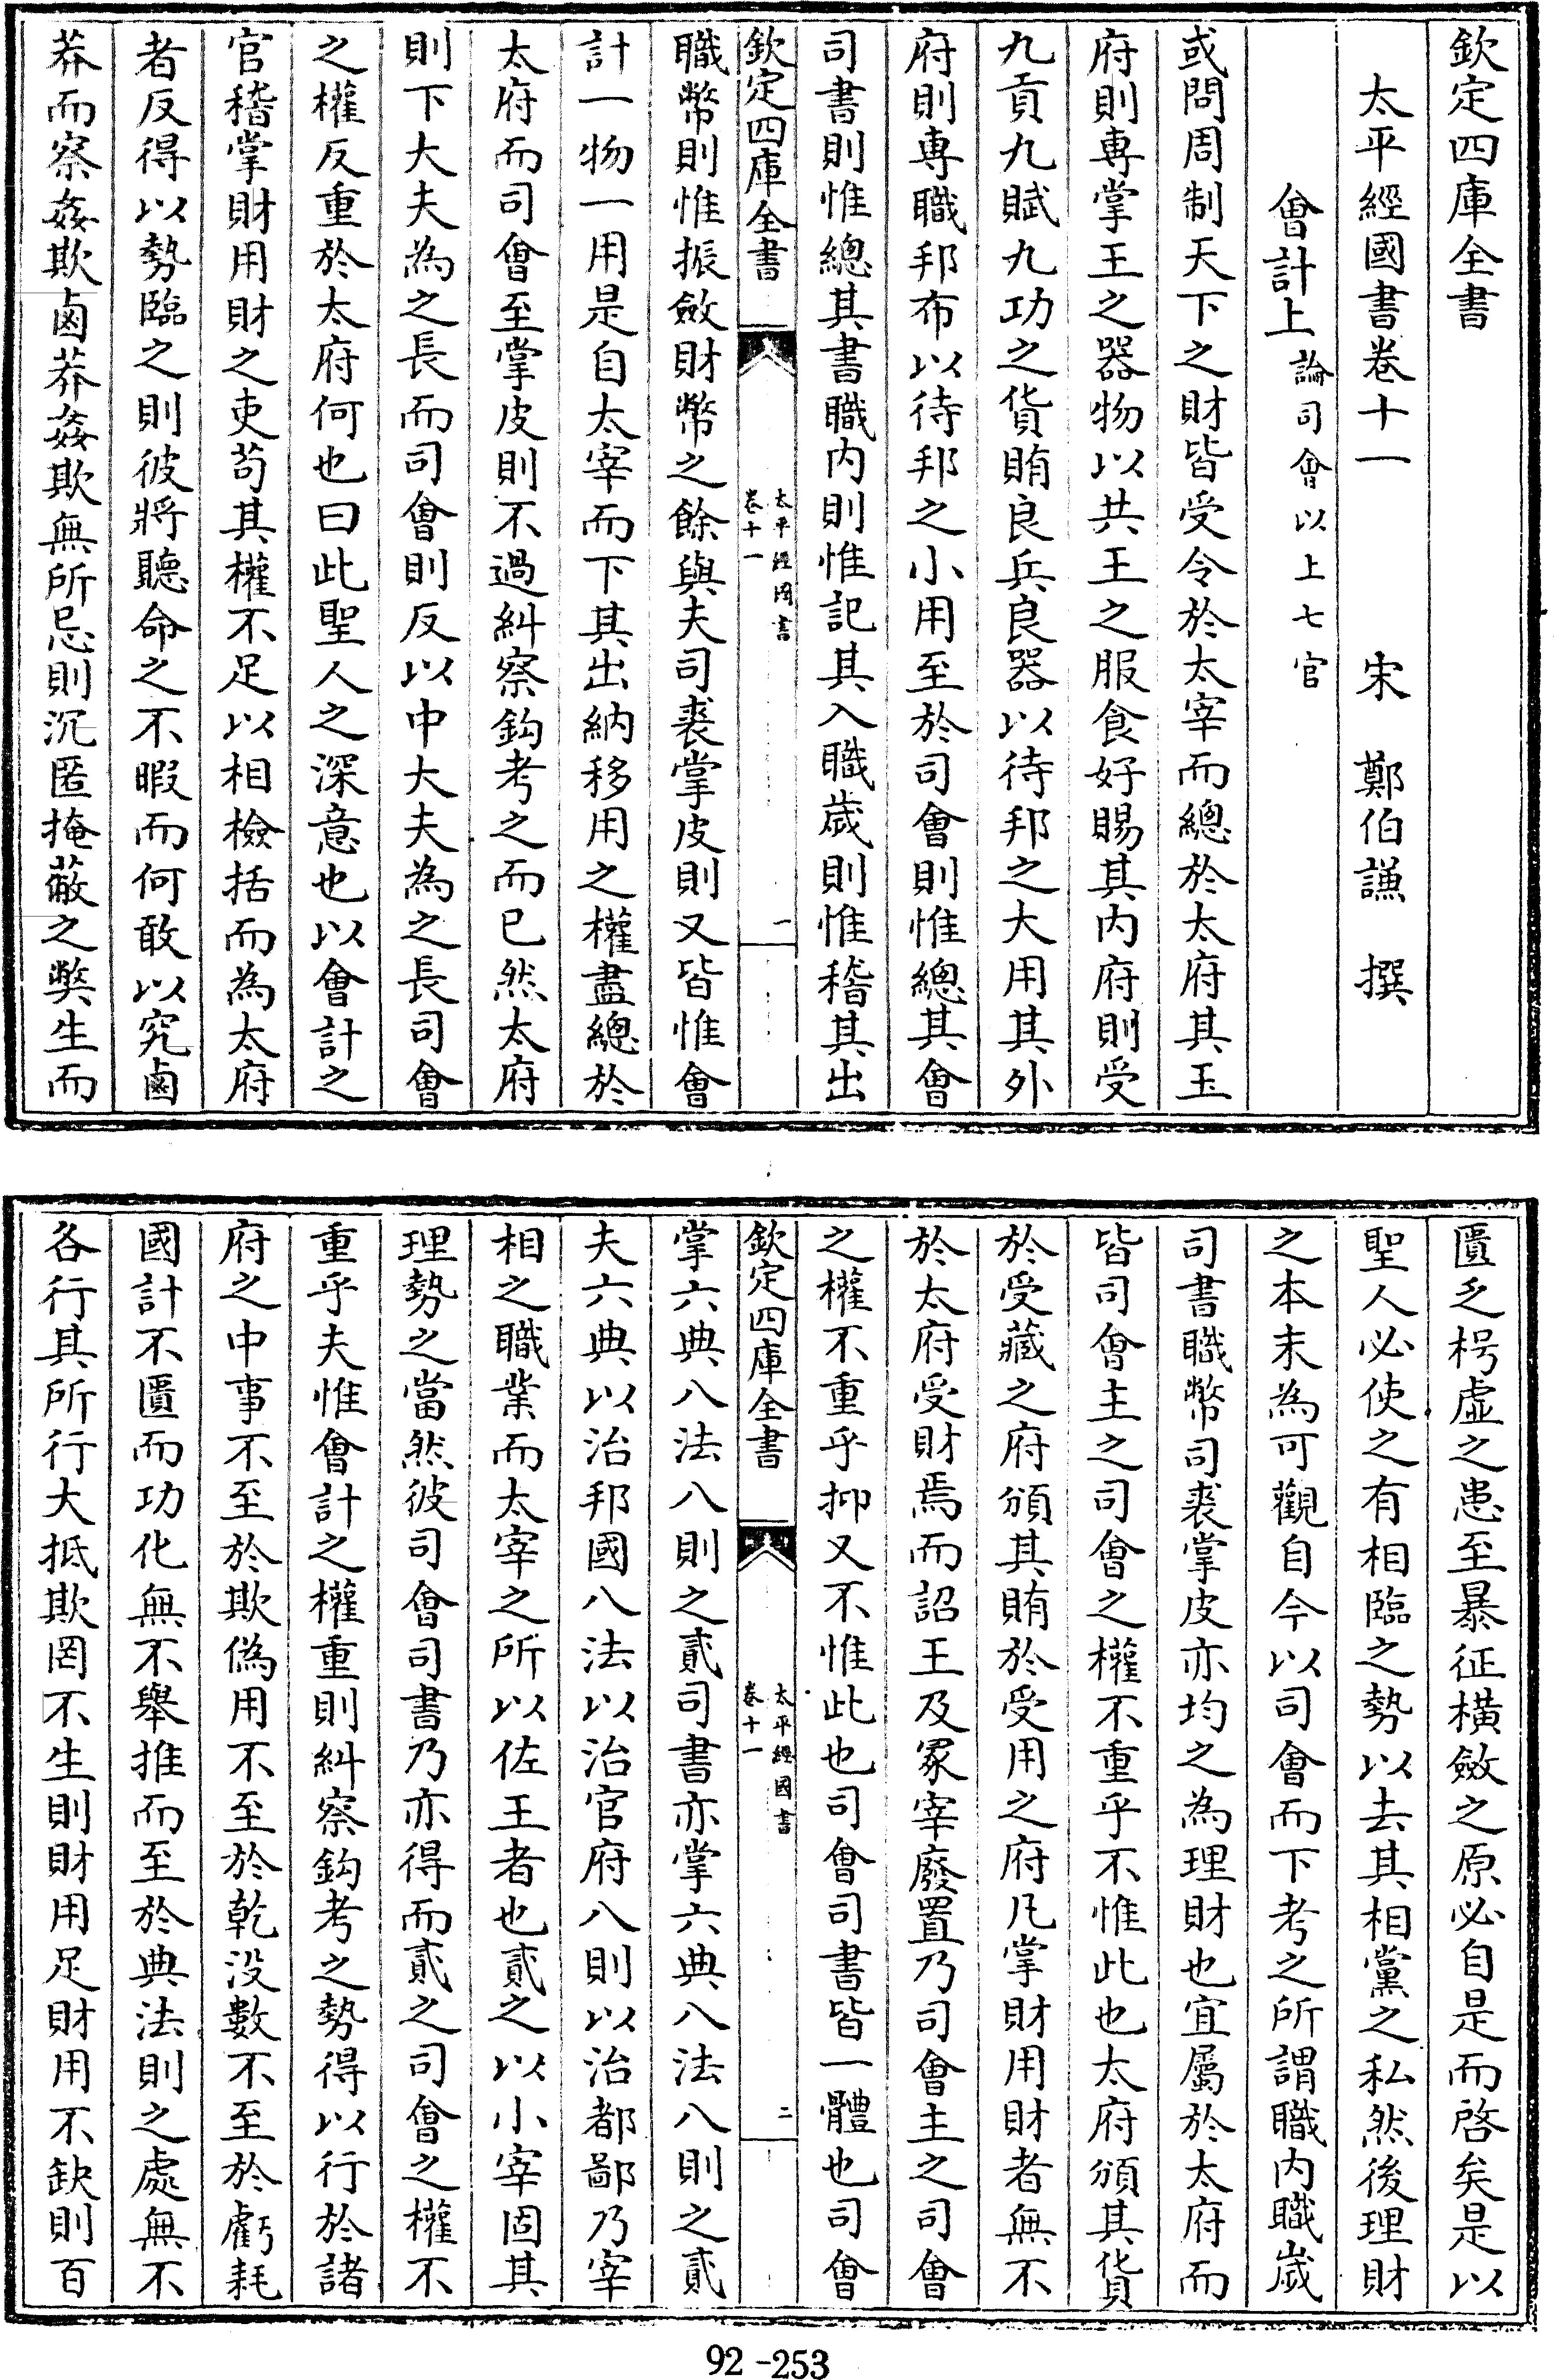 欽定四庫全書
太平經國書卷十一　宋　鄭伯謙　撰
會計上論司會以上七官
或問周制天下之財皆受令於太宰而總於太府其玉
府則専掌王之器物以共王之服食好賜其内府則受
九貢九賦九功之貨賄良兵良器以待邦之大用其外
府則専職邦布以待邦之小用至於司會則惟總其會
司書則惟總其書職内則惟記其入職歲則惟稽其出
欽定四庫全書
太平經國書
卷十一
一
職幣則惟振斂財幣之餘與夫司裘掌皮則又皆惟會
計一物一用是自太宰而下其出納移用之權盡總於
太府而司會至掌皮則不過糾察鈎考之而已然太府
則下大夫為之長而司會則反以中大夫為之長司會
之權反重於太府何也曰此聖人之深意也以會計之
官稽掌財用財之吏苟其權不足以相檢括而為太府
者反得以勢臨之則彼將聽命之不暇而何敢以究鹵
莽而察姦欺鹵莽姦欺無所忌則沉匿掩蔽之弊生而
匱乏枵虛之患至暴征橫斂之原必自是而啓矣是以
聖人必使之有相臨之勢以去其相黨之私然後理財
之本末為可觀自今以司會而下考之所謂職内職歲
司書職幣司裘掌皮亦均之為理財也宜屬於太府而
皆司會主之司會之權不重乎不惟此也太府頒其貨
於受藏之府頒其賄於受用之府凡掌財用財者無不
於太府受財焉而詔王及冢宰廢置乃司會主之司會
之權不重乎抑又不惟此也司會司書皆一體也司會
欽定四庫全書
太平經國書
卷十一
二
掌六典八法八則之貳司書亦掌六典八法八則之貳
夫六典以治邦國八法以治官府八則以治都鄙乃宰
相之職業而太宰之所以佐王者也貳之以小宰固其
理勢之當然彼司會司書乃亦得而貳之司會之權不
重乎夫惟會計之權重則糾察鈎考之勢得以行於諸
府之中事不至於欺偽用不至於乾没數不至於虧耗
國計不匱而功化無不舉推而至於典法則之處無不
各行其所行大抵欺罔不生則財用足財用不缺則百
92-253